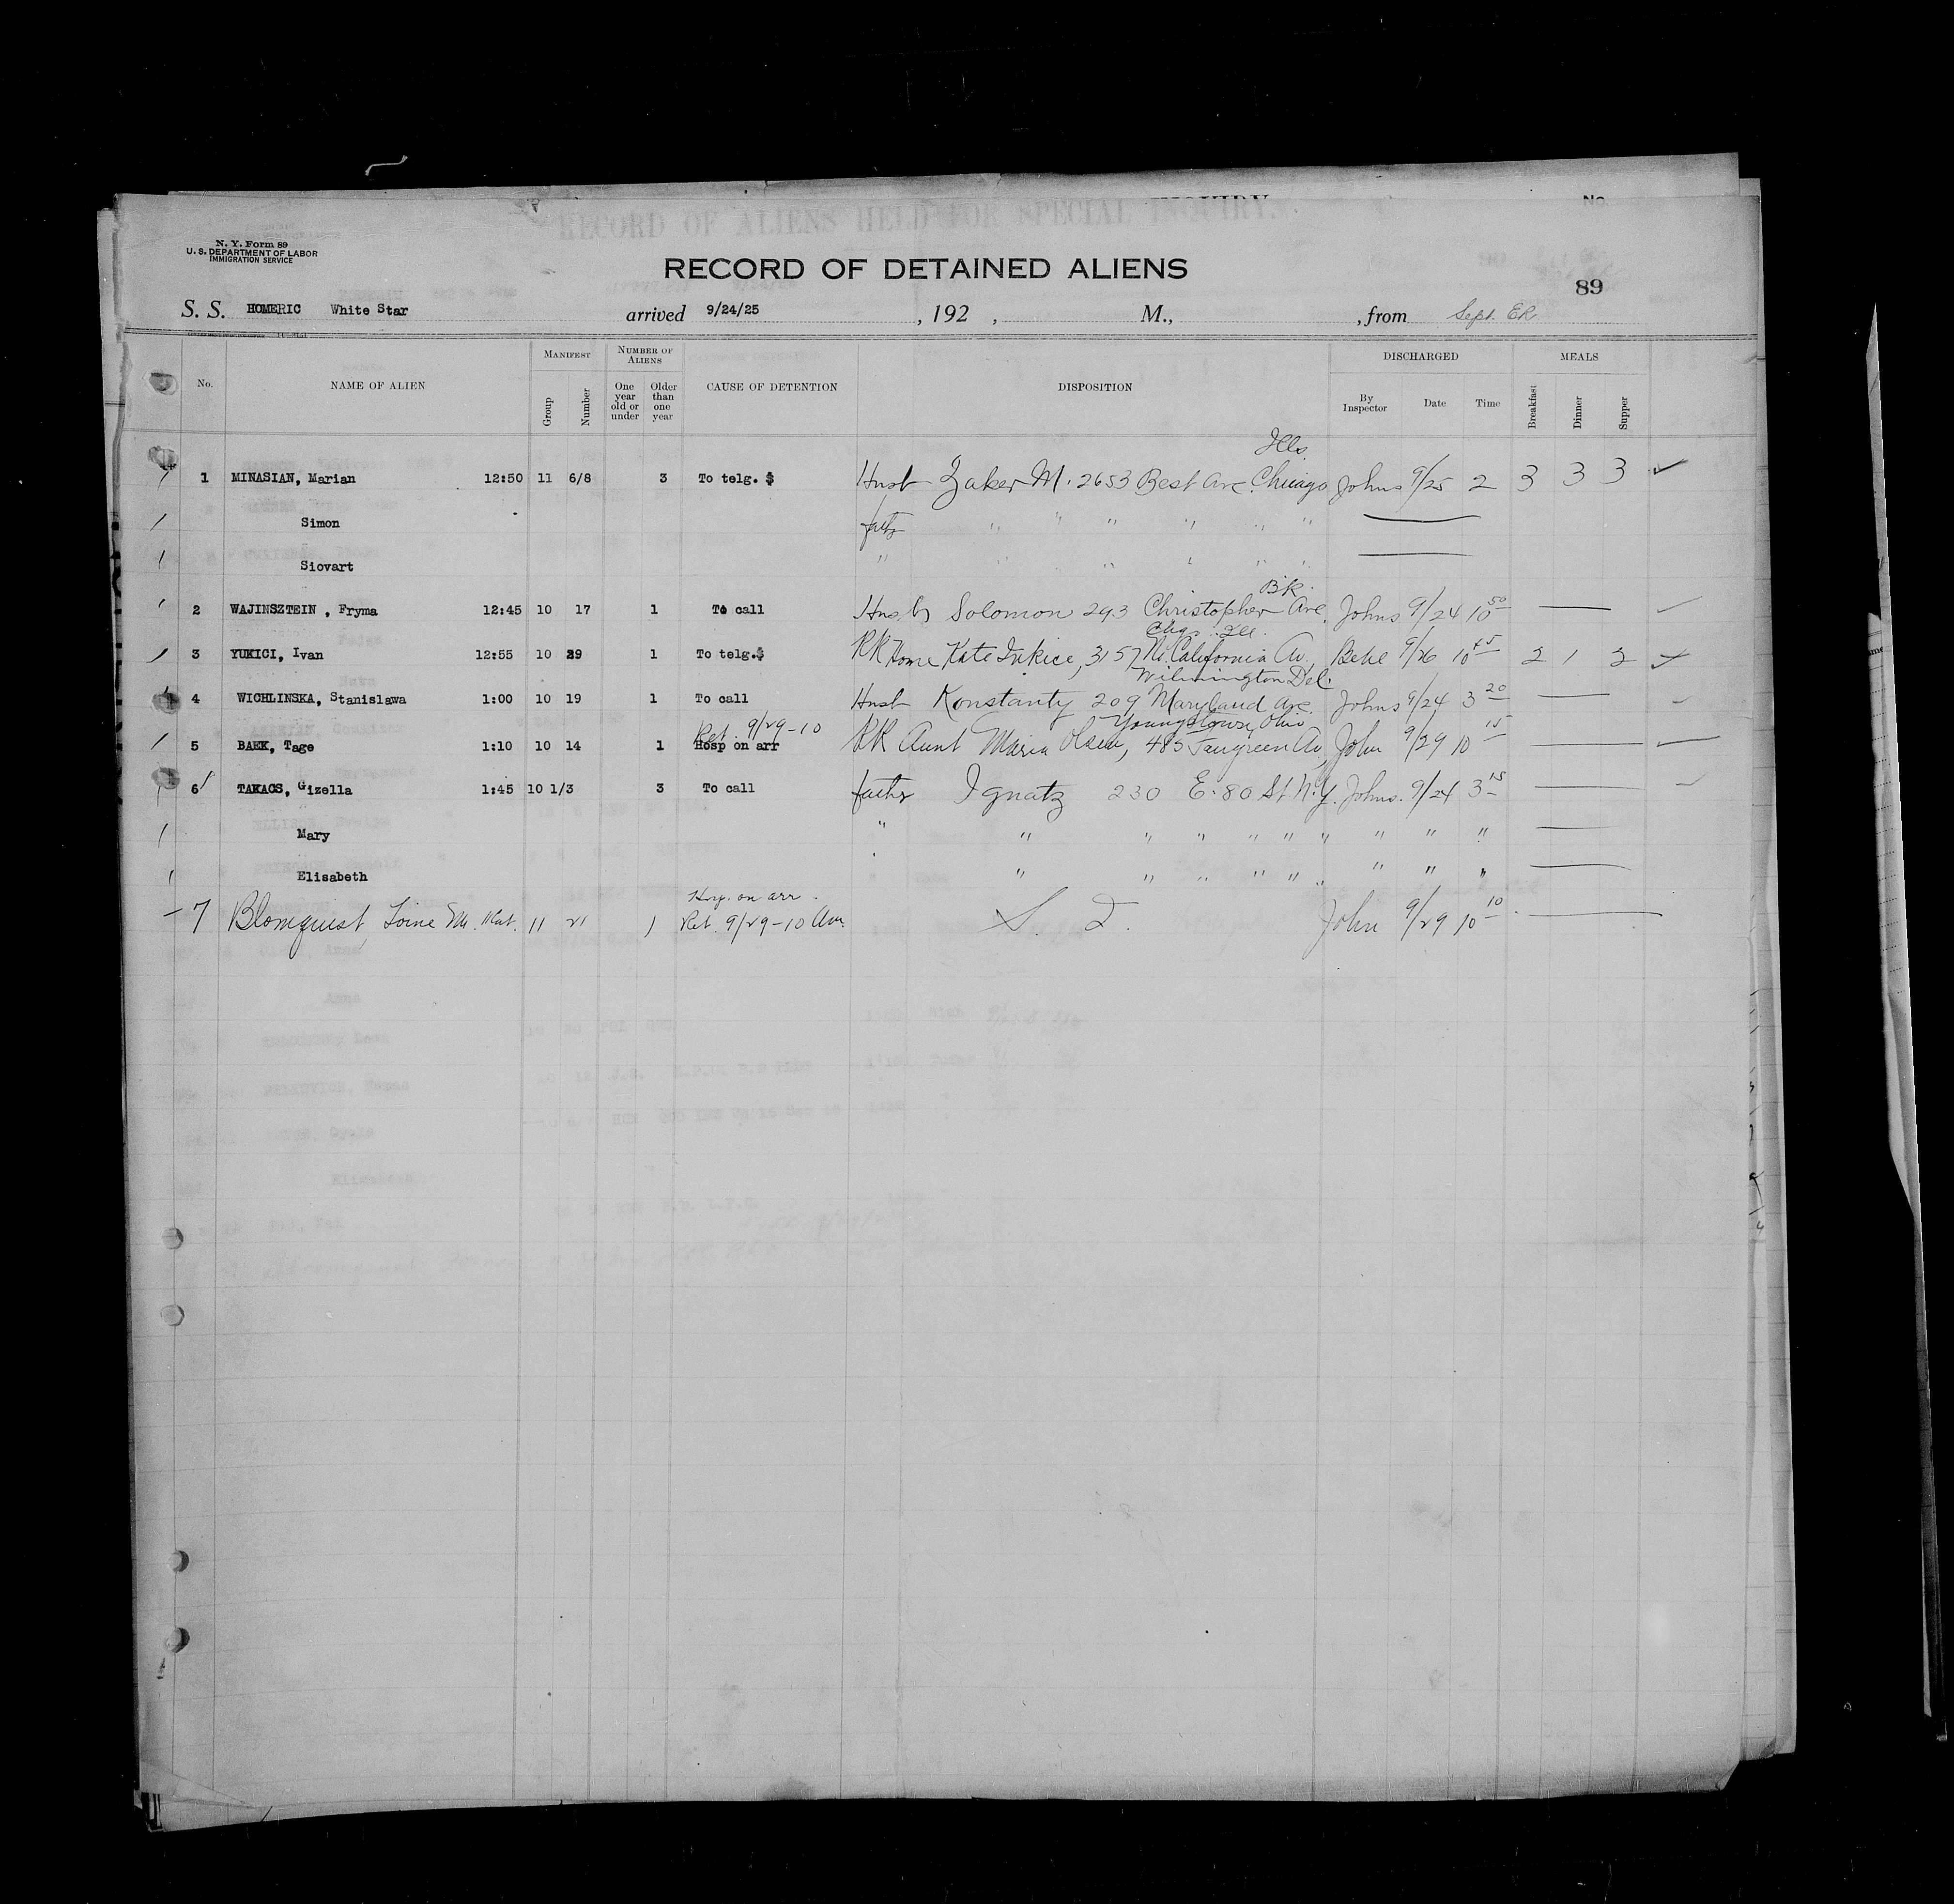 N. Y. Form 89
U. S. DEPARTMENT OF LABOR
IMMIGRATION SERVICE
RECORD OF ALIENS HELD FOR SPECIAL INQUIRY.
No.
RECORD OF DETAINED ALIENS
89
S. S. HOMERIC White Star arrived 9/24/25 , 192 , M., , from Sept. ER
No. NAME OF ALIEN MANIFEST Group Number NUMBER OF ALIENS One year old or under Older than one year CAUSE OF DETENTION DISPOSITION DISCHARGED By Inspector Date Time MEALS Breakfast Dinner Supper
Ills.
1 MINASIAN, Marian 12:50 11 6/8 3 To telg. $ Husb Zaker M. 2653 Best Ave. Chicago Johns 9/25 2 3 3 3
Simon fath " " " " " "
Siovart " " " " " " "
Bk.
2 WAJINSZTEIN , Fryma 12:45 10 17 1 To call Husb Solomon 293 Christopher Ave. Johns 9/24 10 50
Chgo. Ill.
3 YUKICI, Ivan 12:55 10 29 1 To telg.$ RR Home Kate 3157 No. California Av. 9/26 10 45 2 1 2
Wilmington Del.
4 WICHLINSKA, Stanislawa 1:00 10 19 1 To call Husb Konstanty 209 Maryland Ave. Johns 9/24 3 20
Ret. 9/29-10 Youngstown, Ohio
5 BAEK, Tage 1:10 10 14 1 Hosp on arr RR Aunt Maria Olsen, 485 Av, John 9/29 10 15
6 TAKACS, Gizella 1:45 10 1/3 3 To call father Ignatz 230 E. 80 St N.Y. Johns. 9/24 3 15
Mary " " " " " " " " " "
Elisabeth " " " " " " " " "
Hosp. on arr.
7 Blomquist, Toine M. 11 21 1 Ret. 9/29-10 Am. John 9/29 10 10